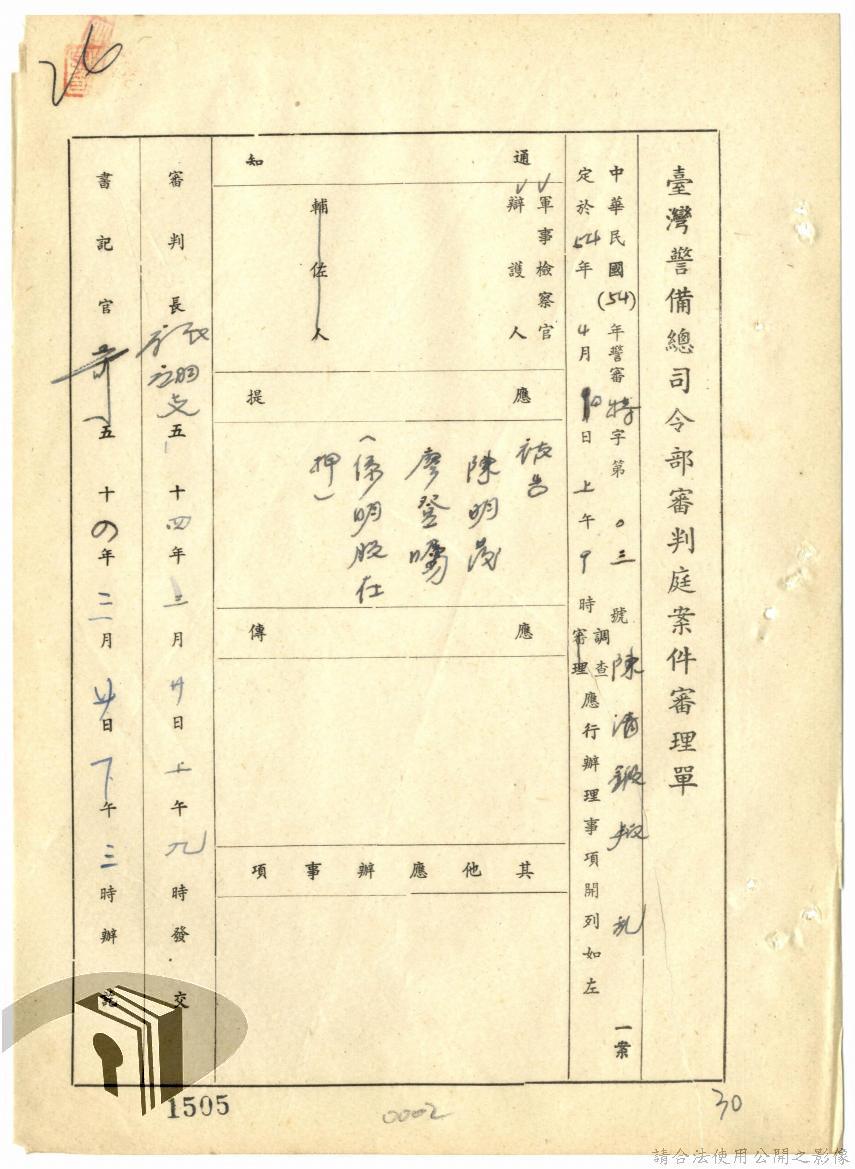 臺灣警備總司令部審判庭案件審理單
中華民國(54)年警審特字第〇三號陳清鍛叛乱一案
定於54年4月10日上午9時調查審理應行辦理事項開列如左
通知
軍事檢察官
辯護人
輔佐人
應提
被告
陳明茂
廖登囑
(係明股在
押)
應傳
其他應辦事項
審判長 五十四年三月廿日上午九時發交
書記官 五十四年三月廿日下午三時辦訖
1505
0002
30
請合法使用公開之影像